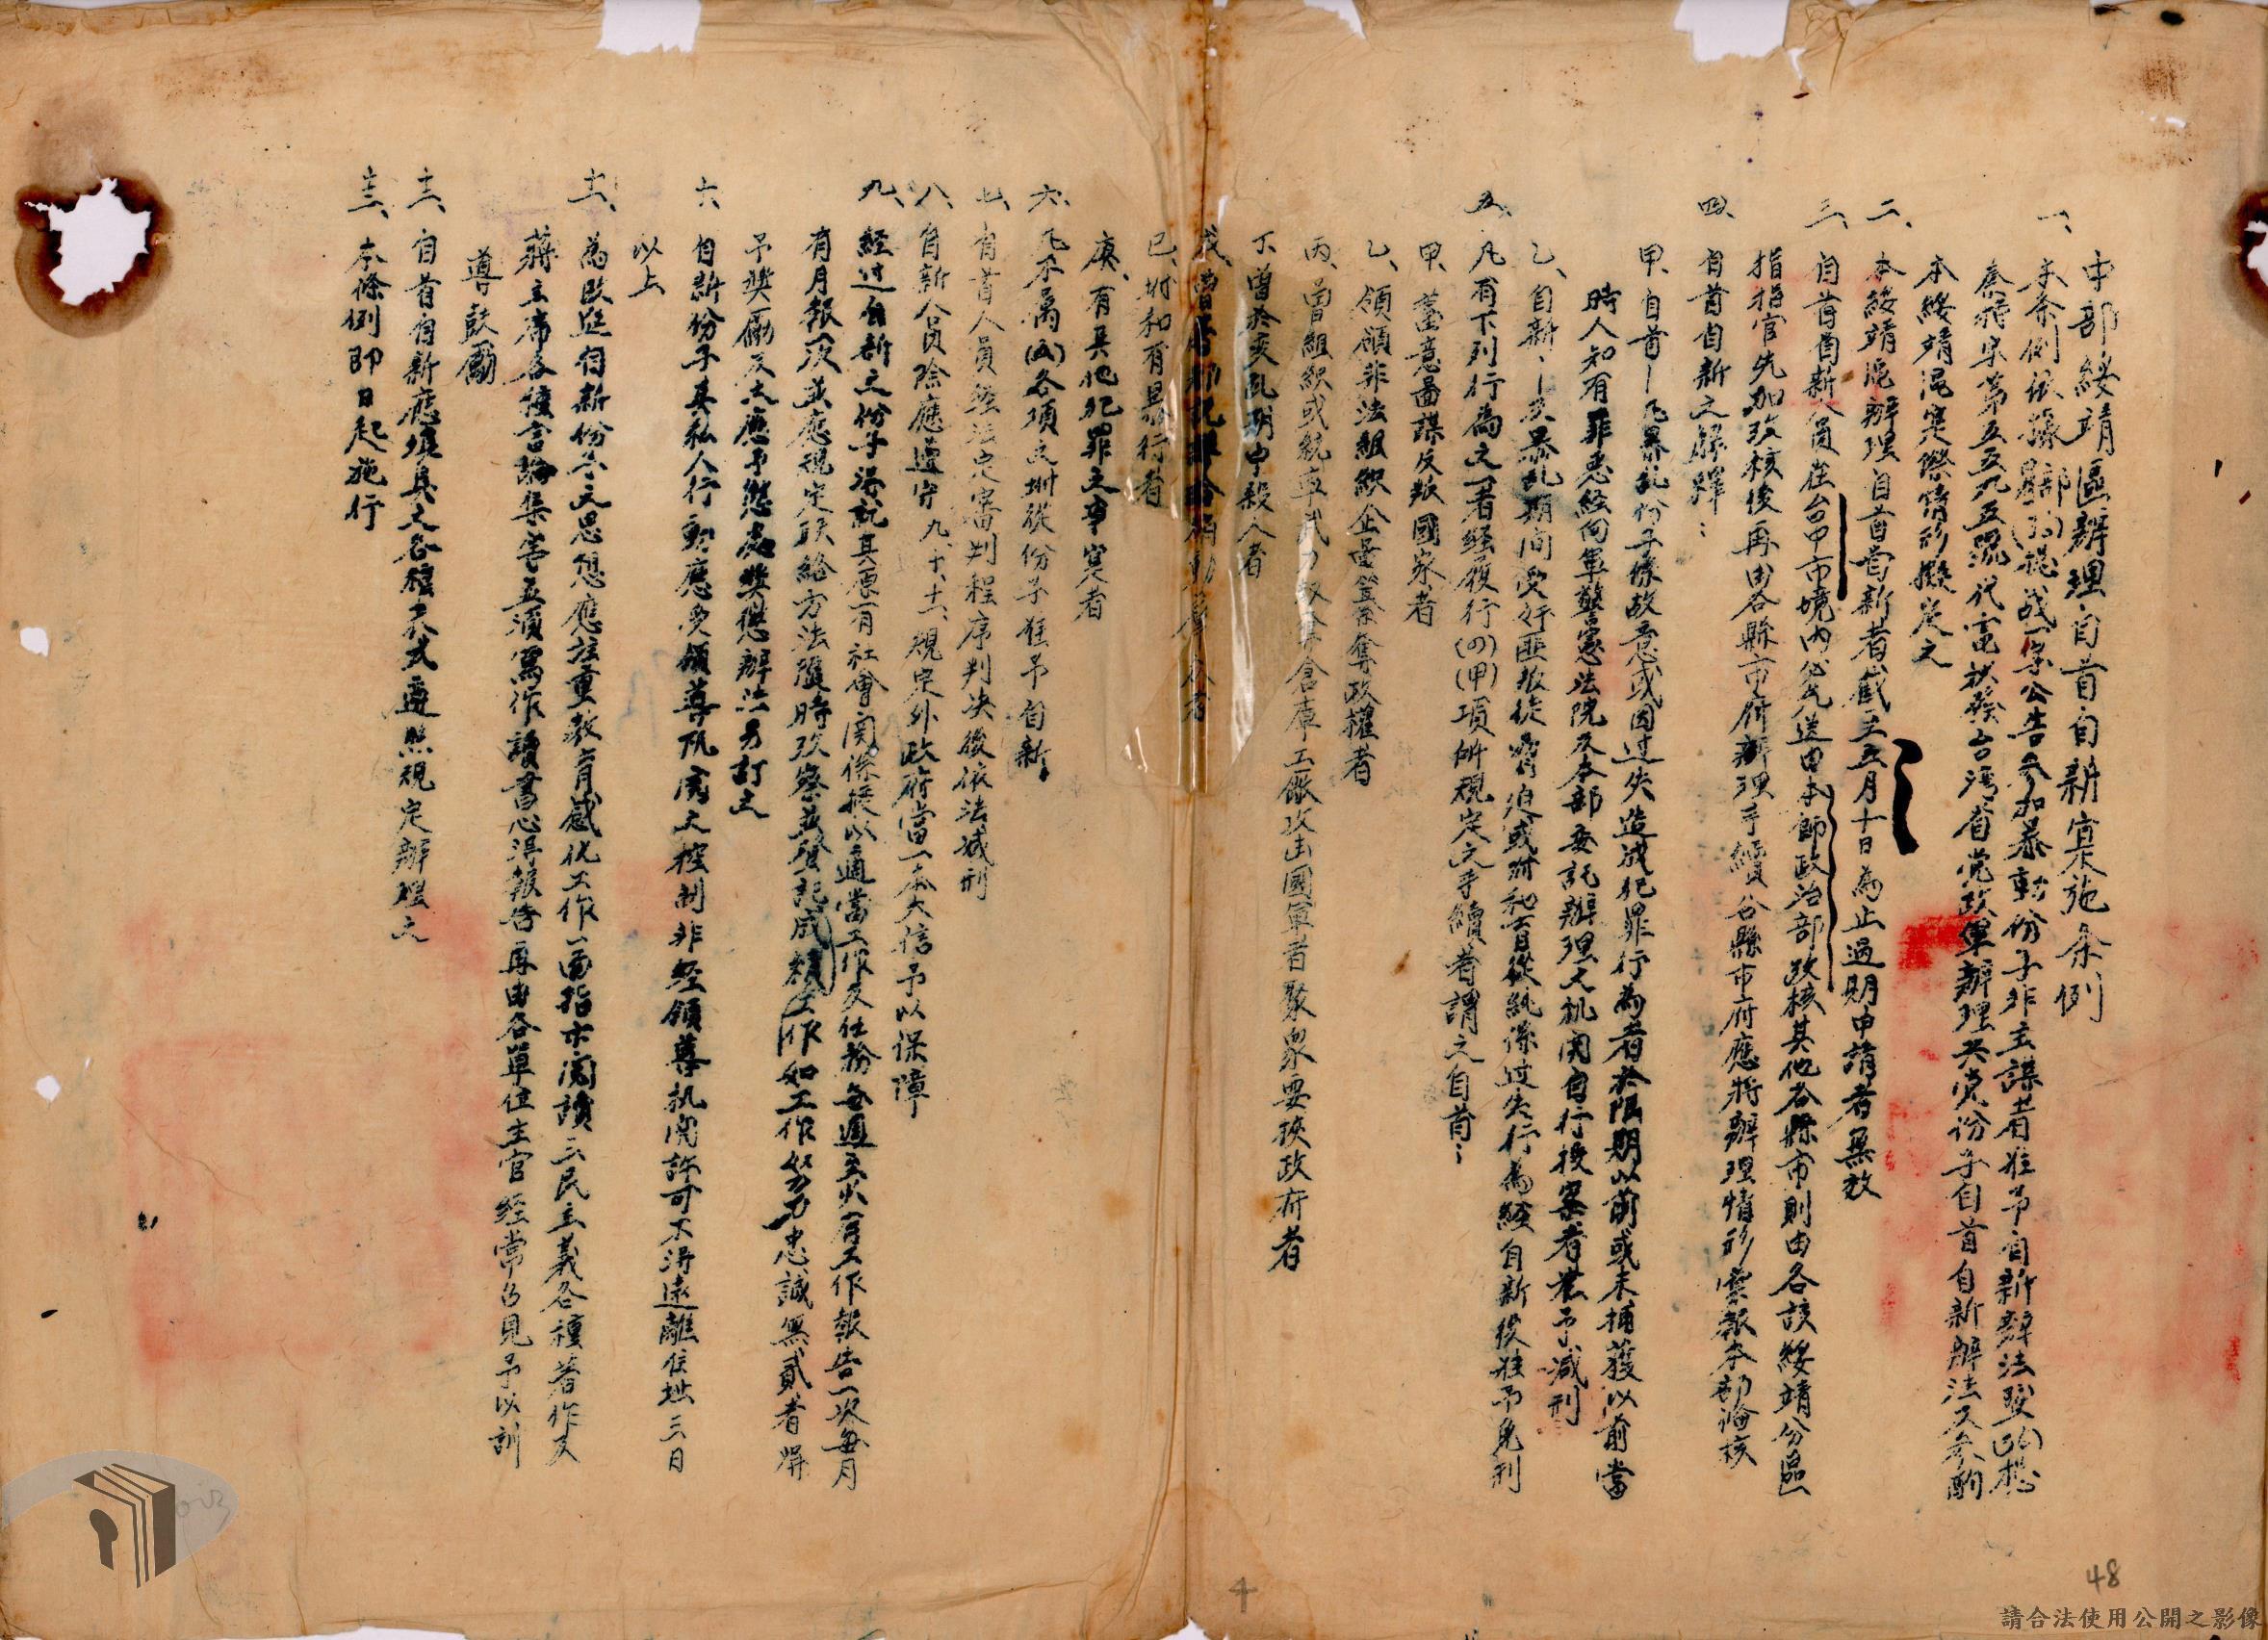 中部綏靖區辦理自首自新實施条例
一、本条例依據本部(36)綏战一字公告参加暴動份子非主謀者准予自新辦法暨(36)想
泰彬宋第五五九五號代電扶發台湾省党政軍辦理共党份子自首自新辦法又参酌
本綏靖區實際情形擬定之
二、本綏靖區辦理自首自新者截至五月十日為止過期申請者無效
三、自首自新人員在台中市境內者送由本師政治部攷核其他各縣市則由各該綏靖分區
指揮官先加攷核後再由各縣市府辦理手續各縣市府應將辦理情形彙報本部備核
四、自首自新之解釋：
甲、自首—凡暴乱份子係故意或因过失造成犯罪行為者於限期以前或未捕獲以前當
時人知有罪悪經向軍警憲法院及本部委託辦理之机関自行投案者准予减刑
乙、自新—在暴乱期间受奸匪叛徒脅迫或附和盲從純係过失行為經自新後准予免刑
五、凡有下列行為之一者經履行(四)(甲)項所規定之手續者謂之自首：
甲、蓄意圖謀反叛國家者
乙、領頭非法組織企圖篡奪政權者
丙、曾組織或統率武力奪倉庫工廠攻击國軍者聚衆要挾政府者
丁、曾於变乱期中殺人者
戊、曾
巳、附和有暴行者
庚、有其他犯罪之事實者
六、凡不属(五)各項之附從份子准予自新
七、自首人員經法定審判程序判决後依法减刑
八、自新人員除應遵守九、十、十一、規定外政府當一本大信予以保障
九、經过自新之份子得就其原有社會関係授以適當工作及任務每週至少有工作報告一次每月
有月報一次並應規定联絡方法隨時攷察並登記成績工作如工作努力忠誠無貳者犀
予獎勵反之應予懲處獎懲辦法另訂之
六、自新份子其私人行動應受領導机関之控制非經領導机関許可不得遠離住址三日
以上
十一、為改造自新份子之思想應注重教育感化工作一面指示閱讀三民主義各種著作及
蔣主席各種言論集等並須寫作讀書心得報告再由各單位主官經常召見予以訓
導鼓勵
十二、自首自新應填具之各種表式遵照規定辦理之
十三、本條例即日起施行
4
48
請合法使用公開之影像